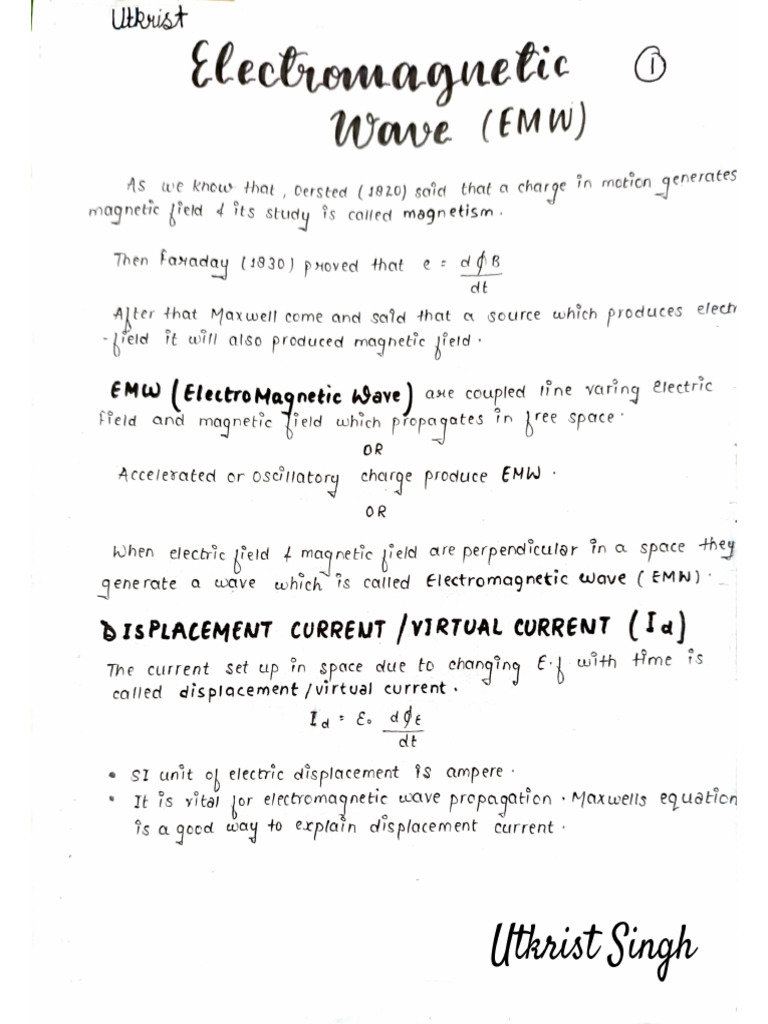 Utkrist
Electromagnetic 1
Wave (EMW)
As we know that, Oersted (1820) said that a charge in motion generates
magnetic field & its study is called magnetism.
Then Faraday (1830) proved that e = dϕB
dt
After that Maxwell come and said that a source which produces electr
-field it will also produced magnetic field.
EMW (ElectroMagnetic Wave) are coupled line varing electric
field and magnetic field which propagates in free space.
OR
Accelerated or oscillatory charge produce EMW.
OR
When electric field & magnetic field are perpendicular in a space they
generate a wave which is called Electromagnetic wave (EMW).
DISPLACEMENT CURRENT /VIRTUAL CURRENT (Id)
The current set up in space due to changing E.f with time is
called displacement/virtual current.
Id = ε₀ dϕE
dt
• SI unit of electric displacement is ampere.
• It is vital for electromagnetic wave propagation. Maxwells equation
is a good way to explain displacement current.
Utkrist Singh